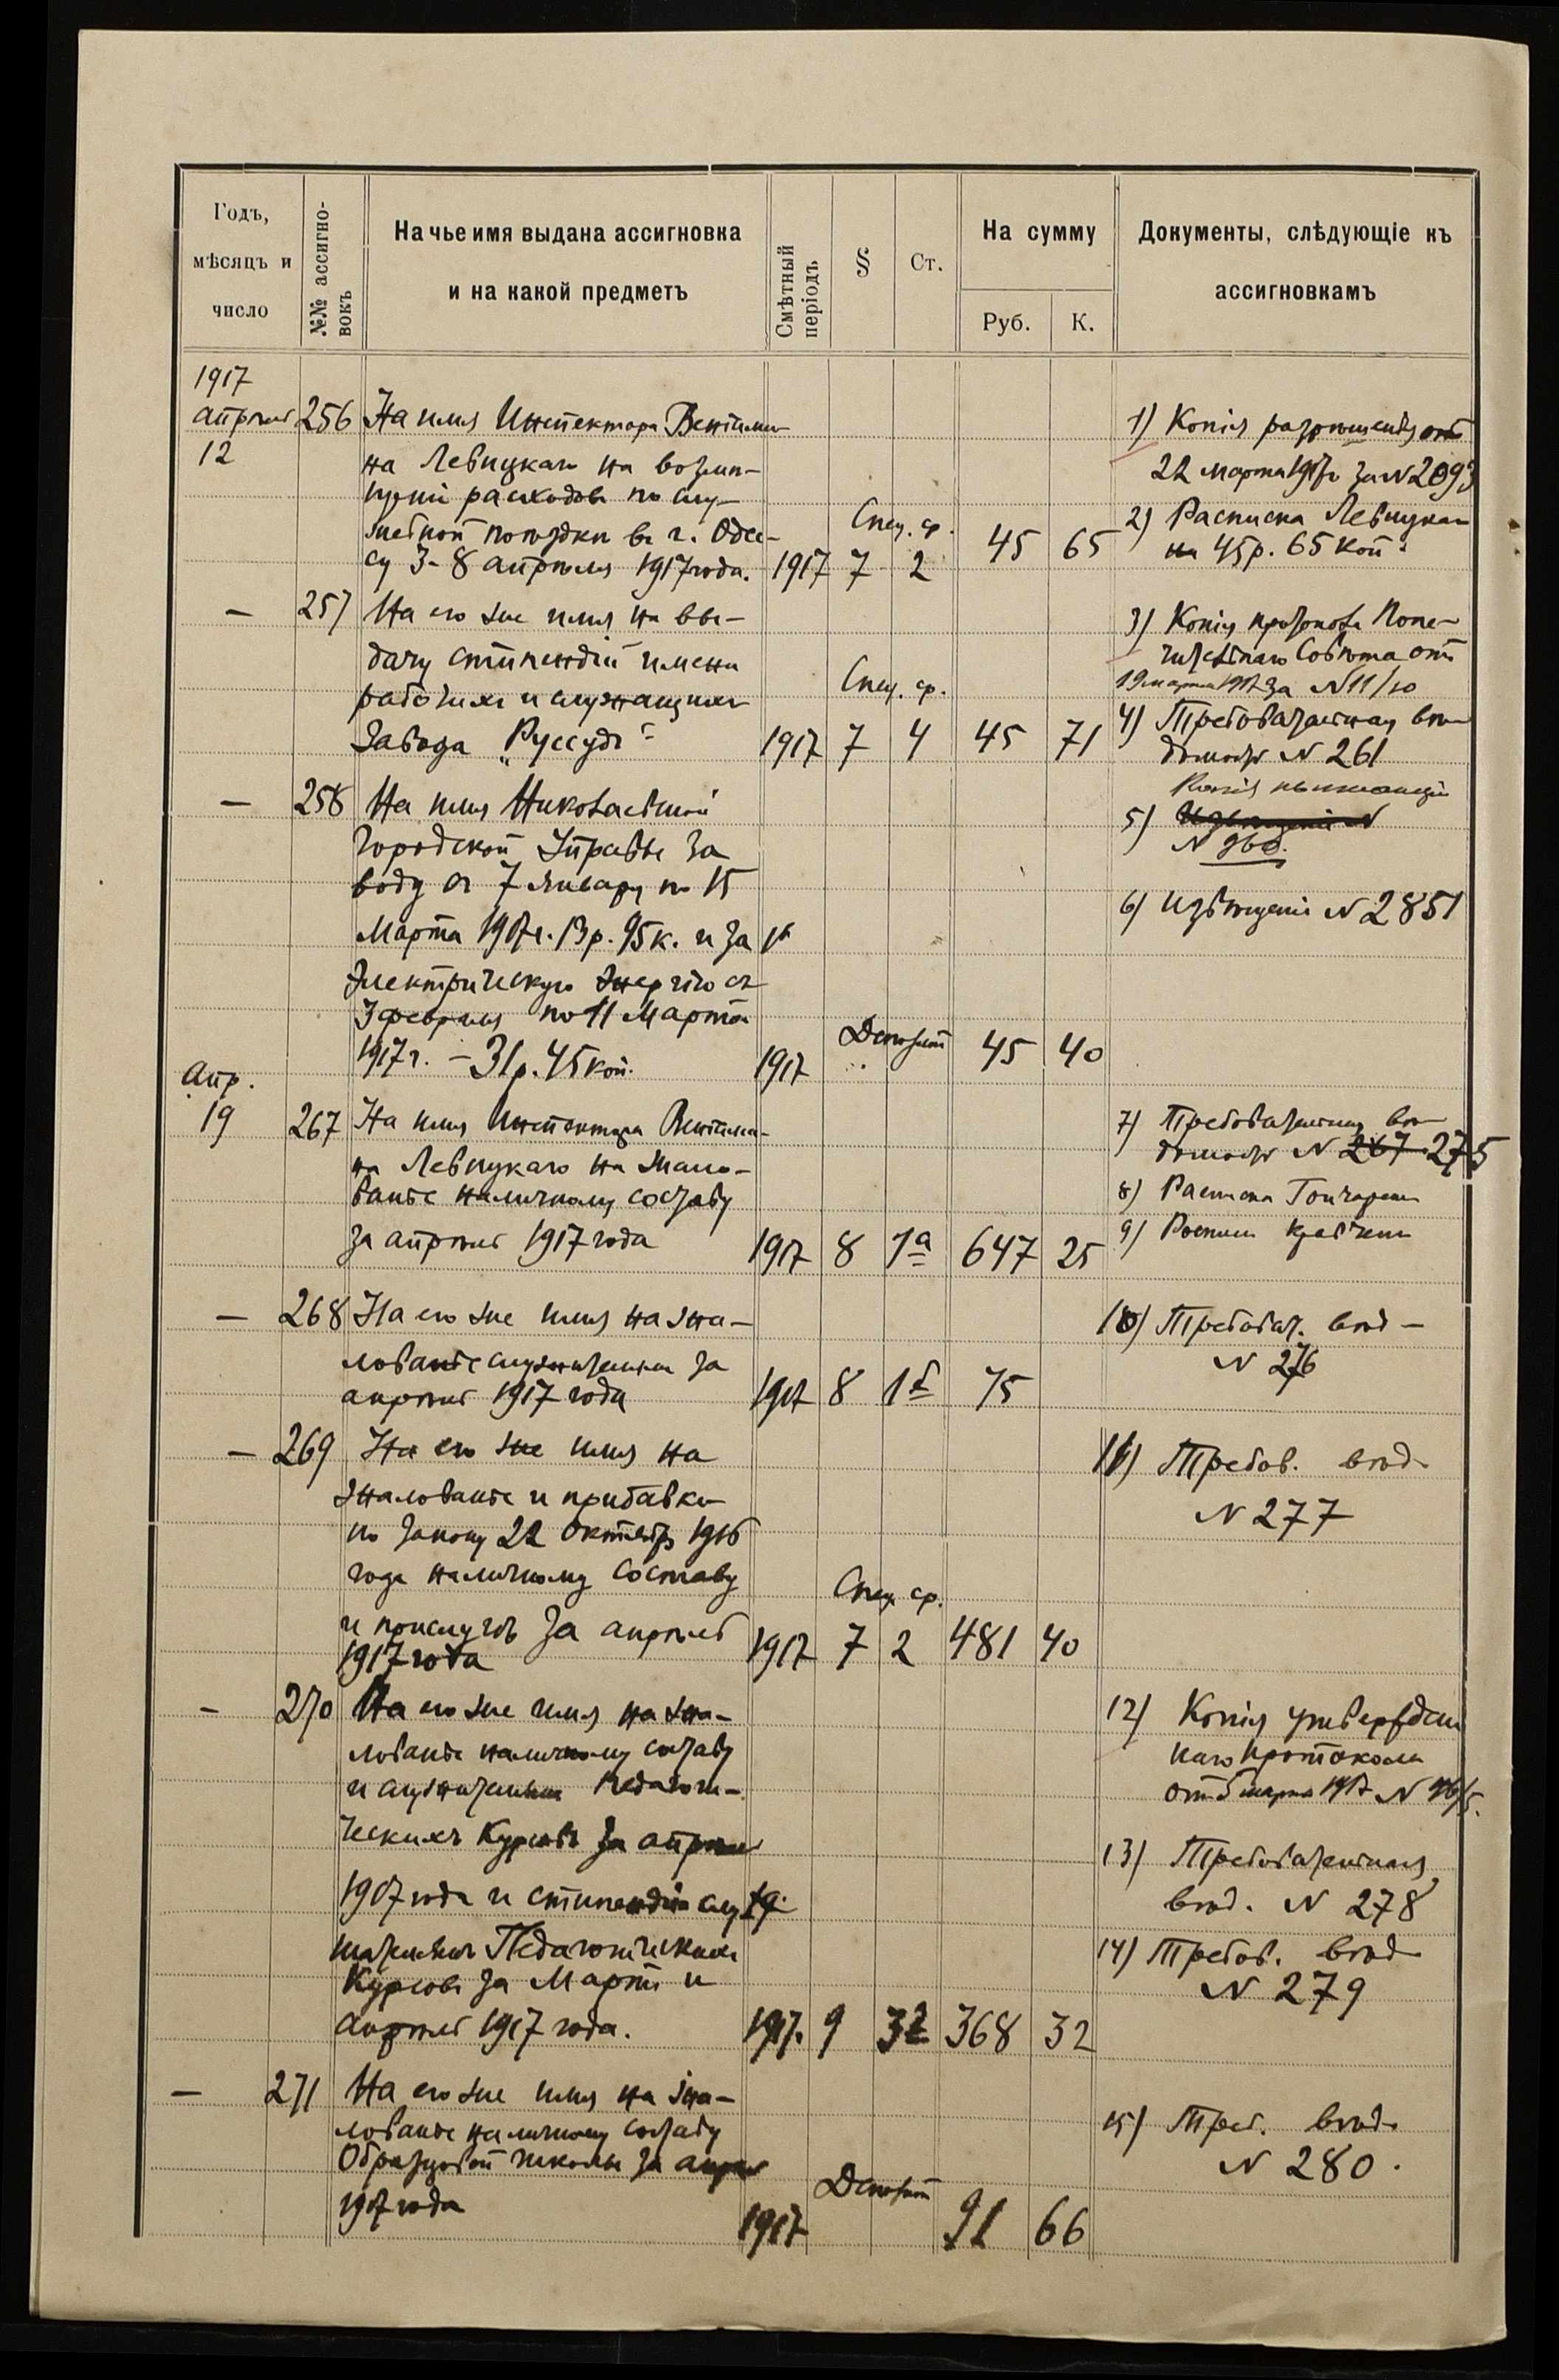 Годъ,
мѣсяцъ и
число
№№ ассигно-
вокъ
На чье имя выдана ассигновка
и на какой предметъ
Смѣтный
періодъ
§
Ст.
На сумму
Руб.
К.
Документы, слѣдующіе къ
ассигновкамъ
1917
апрѣль 256 На имя Инспектора Веніами-
12
на Левицкаго на возмѣ-
щеніе расходовъ по слу-
жебной поѣздкѣ въ г. Одес-
су 3-8 апрѣля 1917 года. 1917 Спец. ср. 7 2 45 65
1) Копія разрѣшенія отъ
22 марта 1917 г. за № 2093
2) Расписка Левицкаго
на 45 р. 65 коп.
— 257 На его же имя на вы-
дачу стипендій имени
рабочихъ и служащихъ
Завода „Руссудъ“ 1917 Спец. ср. 7 4 45 71
3) Копія протокола Попе-
чительнаго Совѣта отъ
19 марта 1917 за № 11/10
4) Требовательная вѣ-
домость № 261
— 258 На имя Николаевской
Городской Управы за
воду съ 7 Января по 15
Марта 1917 г. 13 р. 95 к. и за
электрическую энергію съ
3 февраля по 11 Марта
1917 г. — 31 р. 45 коп. 1917 Депозит 45 40
Копія квитанціи
5) № 960.
6) Извѣщеніе № 2851
Апр.
19 267 На имя Инспектора Веніами-
на Левицкаго на жало-
ванье наличному составу
за апрѣль 1917 года 1917 8 1а 647 25
7) Требовательная вѣ-
домость № 267 275
8) Расписка Гончаренко
9)
— 268 На его же имя на жа-
лованье служителямъ за
апрѣль 1917 года 1917 8 1б 75
10) Требоват. вѣд —
№ 276
— 269 На его же имя на
жалованье и прибавки
по закону 22 Октября 1916
года наличному составу
и прислугѣ за апрѣль
1917 года 1917 Спец. ср. 7 2 481 40
11) Требов. вѣд.
№ 277
— 270 На его же имя на жа-
лованье наличному составу
и служителямъ Педагоги-
ческихъ Курсовъ за апрѣль
1917 года и стипендій слу-
шателямъ Педагогическихъ
Курсовъ за Мартъ и
апрѣль 1917 года. 1917. 9 32 368 32
12) Копія утвержден
наго протокола
отъ 5 марта 1917 №
13) Требовательная
вѣд. № 278
14) Требов. вѣд
№ 279
— 271 На его же имя на жа-
лованье наличному составу
Образцовой школы за апрѣль
1917 года 1917 Депозит 91 66
15) Треб. вѣд.
№ 280.